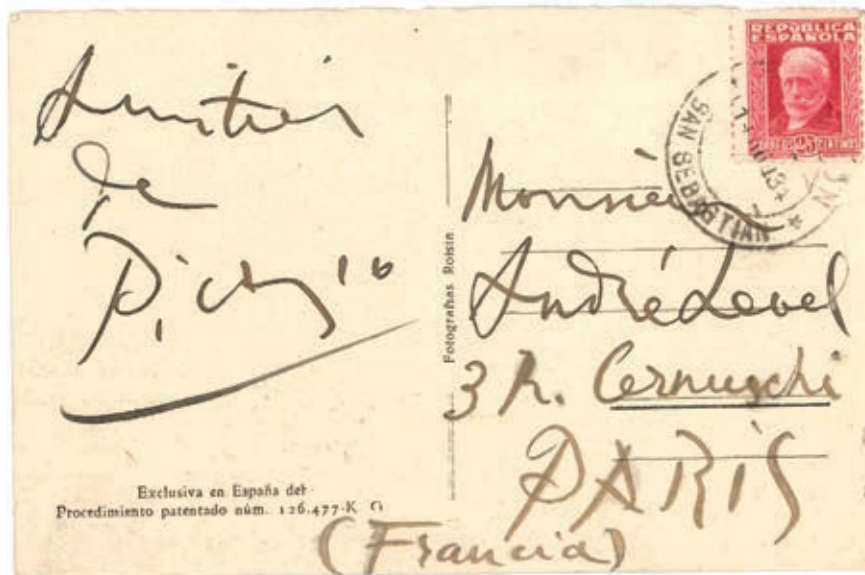 Amitiés
de
Picasso
Exclusiva en España del
Procedimiento patentado núm. 126.477-K G
Fotografías Roisin
REPÚBLICA
ESPAÑOLA
CORREOS 25 CENTIMOS
SAN SEBASTIAN
Monsieur
André Level
3 R. Cernuschi
PARIS
(Francia)